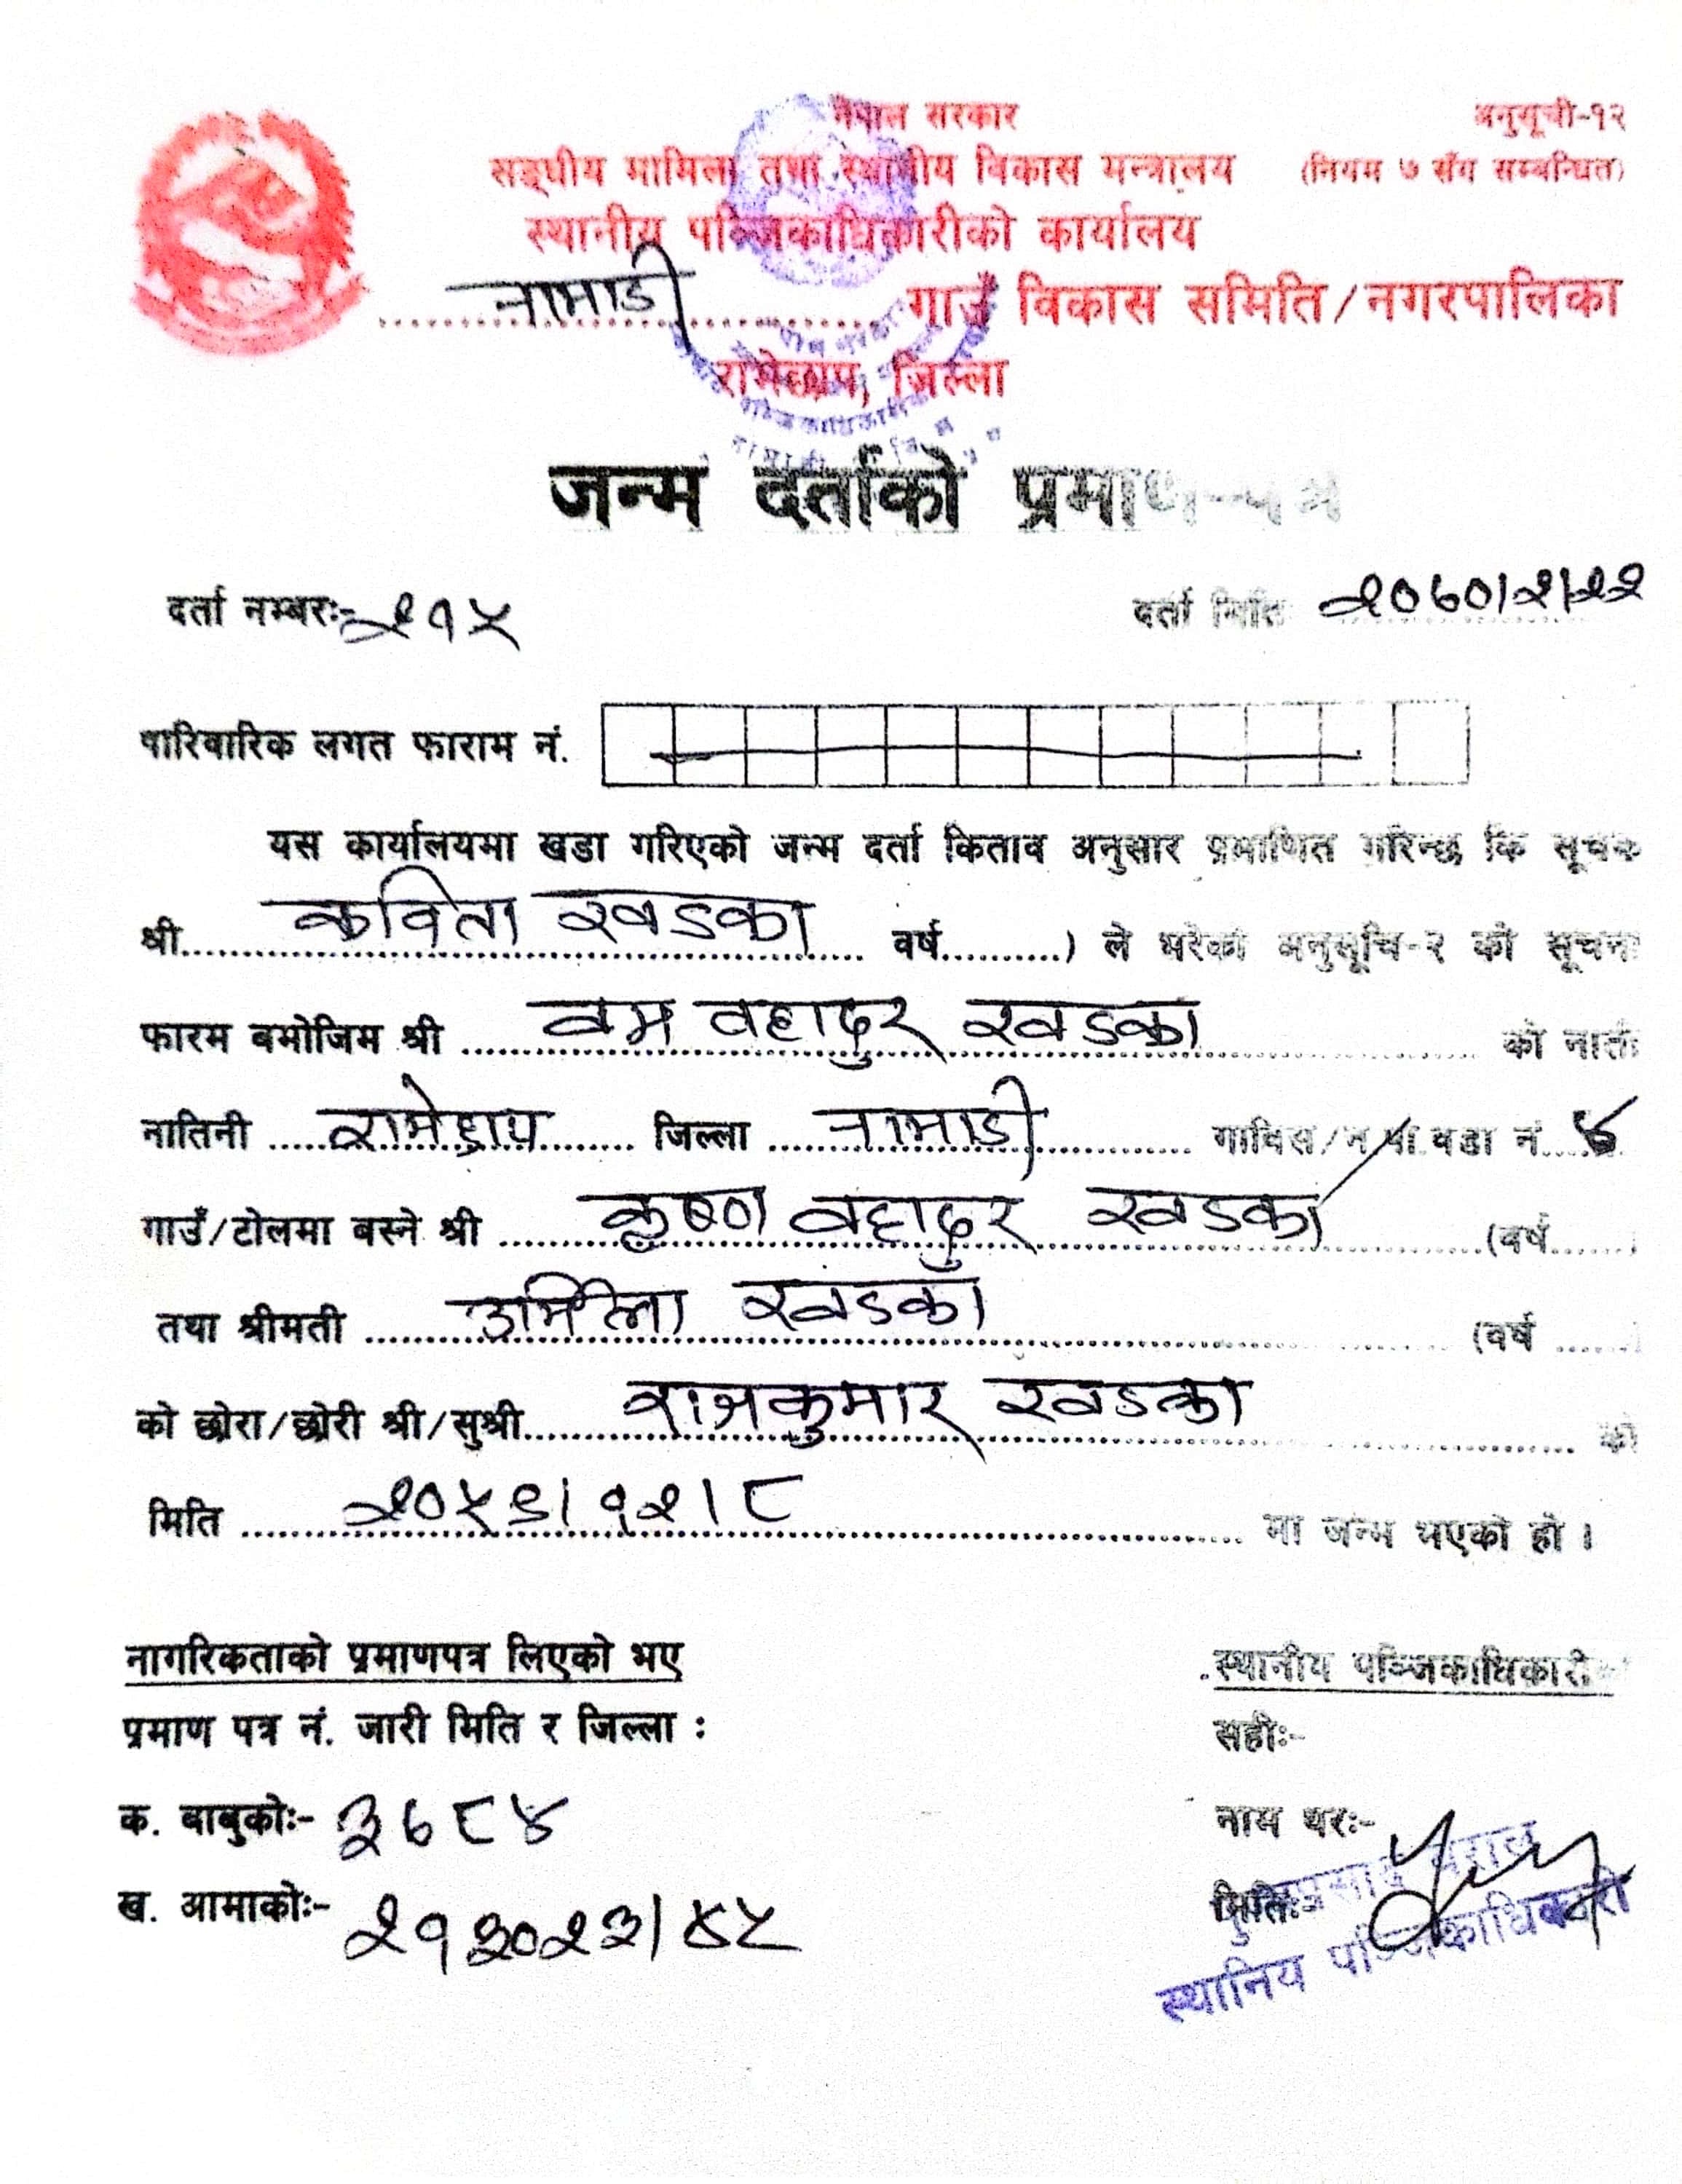 नेपाल सरकार
अनुसूची-१२
सङ्घीय मामिला तथा स्थानीय विकास मन्त्रालय (नियम ७ सँग सम्बन्धित)
स्थानीय पञ्जिकाधिकारीको कार्यालय
नामाडी गाउँ विकास समिति/नगरपालिका
रामेछाप, जिल्ला
जन्म दर्ताको प्रमाण-पत्र
दर्ता नम्बरः- २१५ दर्ता मिति २०७०।२।२२
पारिवारिक लगत फाराम नं.
यस कार्यालयमा खडा गरिएको जन्म दर्ता किताव अनुसार प्रमाणित गरिन्छ कि सूचक
श्री कविता खडका वर्ष..........) ले भरेको अनुसूचि-२ को सूचना
फारम बमोजिम श्री वम वहादुर खडका को नाती
नातिनी रामेछाप जिल्ला नामाडी गाविस/न.पा.वडा नं. ४
गाउँ/टोलमा बस्ने श्री कृष्ण वहादुर खडका (वर्ष......)
तथा श्रीमती उर्मिला खडका (वर्ष ......)
को छोरा/छोरी श्री/सुश्री राजकुमार खडका को
मिति २०५९।१२।८ मा जन्म भएको हो ।
नागरिकताको प्रमाणपत्र लिएको भए
प्रमाण पत्र नं. जारी मिति र जिल्ला :
क. बाबुकोः- ३७८४
ख. आमाकोः- २१३०२३/४५
स्थानीय पञ्जिकाधिकारीको
सहीः-
नाम थरः-
मितिः-
स्थानिय पञ्जिकाधिकारी